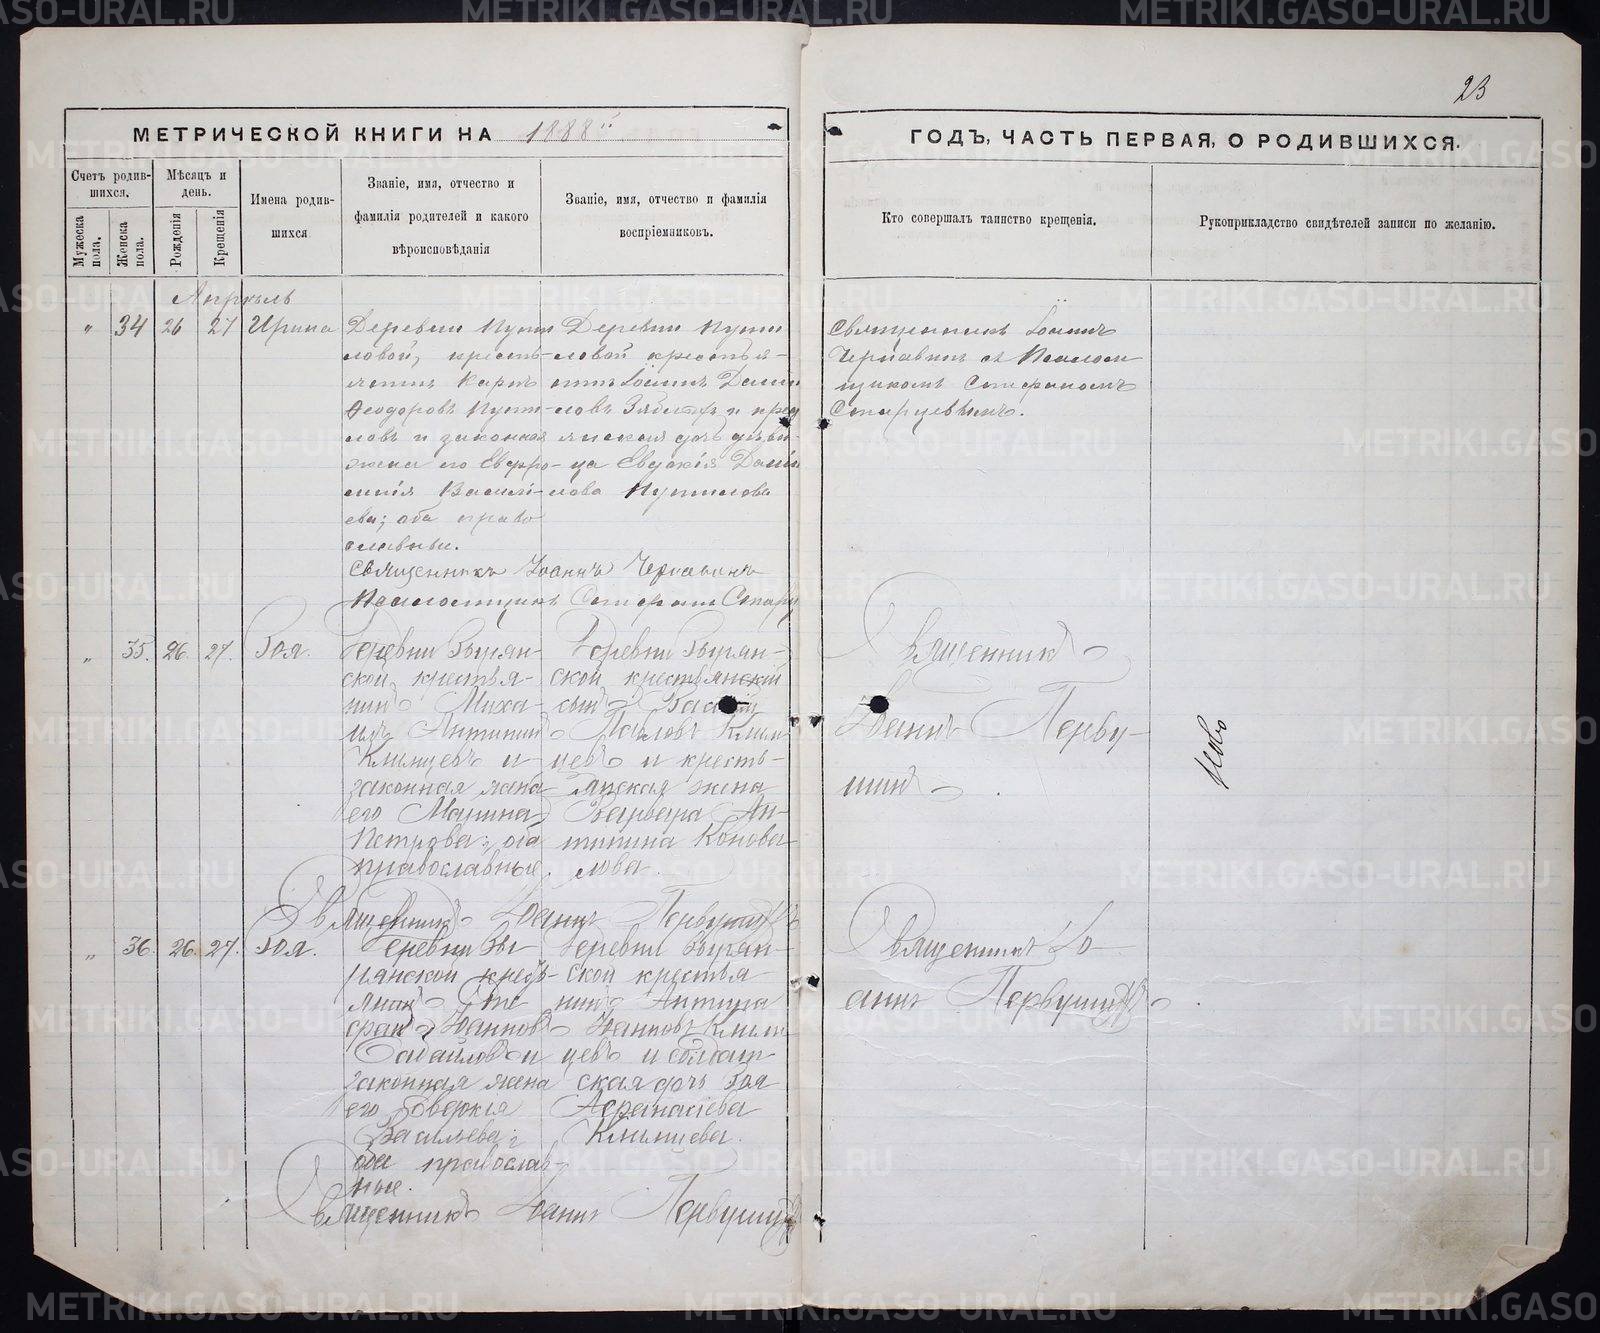 23
МЕТРИЧЕСКОЙ КНИГИ НА 1888й
ГОДЪ, ЧАСТЬ ПЕРВАЯ, О РОДИВШИХСЯ.
Счетъ родив-
шихся.
Мужеска
пола.
Женска
пола.
Мѣсяцъ и
день.
Рожденія
Крещенія
Имена родив-
шихся
Званіе, имя, отчество и
фамилія родителей и какого
вѣроисповѣданія
Званіе, имя, отчество и фамилія
воспріемниковъ.
Кто совершалъ таинство крещенія.
Рукоприкладство свидѣтелей записи по желанію.
Апрѣль
" 34 26 27 Ирина
Деревни Пути
ловой, кресть-
янинъ Карпъ
Ѳеодоровъ Пути-
ловъ и законная
жена его Евфро-
синія Василь-
ева; оба право
славные.
Деревни Пути
ловой крестья-
нинъ Іоаннъ Дани
ловъ и крес
янская дочь дѣви-
ца Евдокія Дани
лова Путилова
Священникъ Іоаннъ
Чернавинъ съ Псалом
щикомъ Стефаномъ
Старцевымъ.
Священникъ Іоаннъ Чернавинъ
Псаломщикъ Стефанъ Старц
" 35. 26. 27. Зоя.
Деревни Выгян-
ской, крестья-
нинъ Миха-
илъ Антипинъ
Клынцевъ и
законная жена
его Марина
Петрова; оба
православные.
Деревни Выгян-
ской крестьянскій
сынъ Василій
Павловъ Клын
цевъ и кресть-
янская жена
Варвара Ан-
типина Конова
лова.
Священникъ
Іоаннъ Перву-
шинъ.
Священникъ Іоаннъ Первушинъ
" 36. 26. 27. Зоя.
Деревни Вы
гянской кресть-
янинъ Сте
фанъ Іоанновъ
и
законная жена
его
Васильева;
оба православ-
ные.
Деревни Выгян-
ской крестья
нинъ Антипа
Іоанновъ Клын
цевъ и солдат-
ская дочь Зоя
Аѳанасіева
Клынцева.
Священникъ Іо-
аннъ Первушинъ.
Священникъ Іоаннъ Первушинъ
METRIKI.GASO-URAL.RU